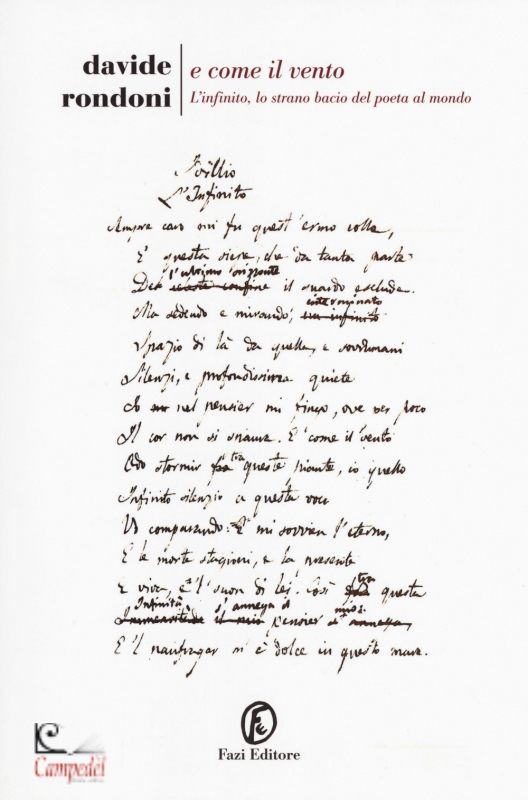 davide
rondoni
e come il vento
L'infinito, lo strano bacio del poeta al mondo
Idillio
L'Infinito
Sempre caro mi fu quest'ermo colle,
E questa siepe, che da tanta parte
l'ultimo orizzonte
De celeste confine il guardo esclude.
interminato
Ma sedendo e mirando, un infinito
Spazio di là da quella, e sovrumani
Silenzi, e profondissima quiete
Io nel pensier mi fingo, ove per poco
Il cor non si spaura. E come il vento
tra
Odo stormir fra queste piante, io quello
Infinito silenzio a questa voce
Vo comparando: E mi sovvien l'eterno,
E le morte stagioni, e la presente
tra
E viva, e 'l suon di lei. Così fra questa
Infinità s'annega il mio:
Immensitade il mio pensier s'annega,
E 'l naufragar m'è dolce in questo mare.
Fe
Fazi Editore
Campedèl